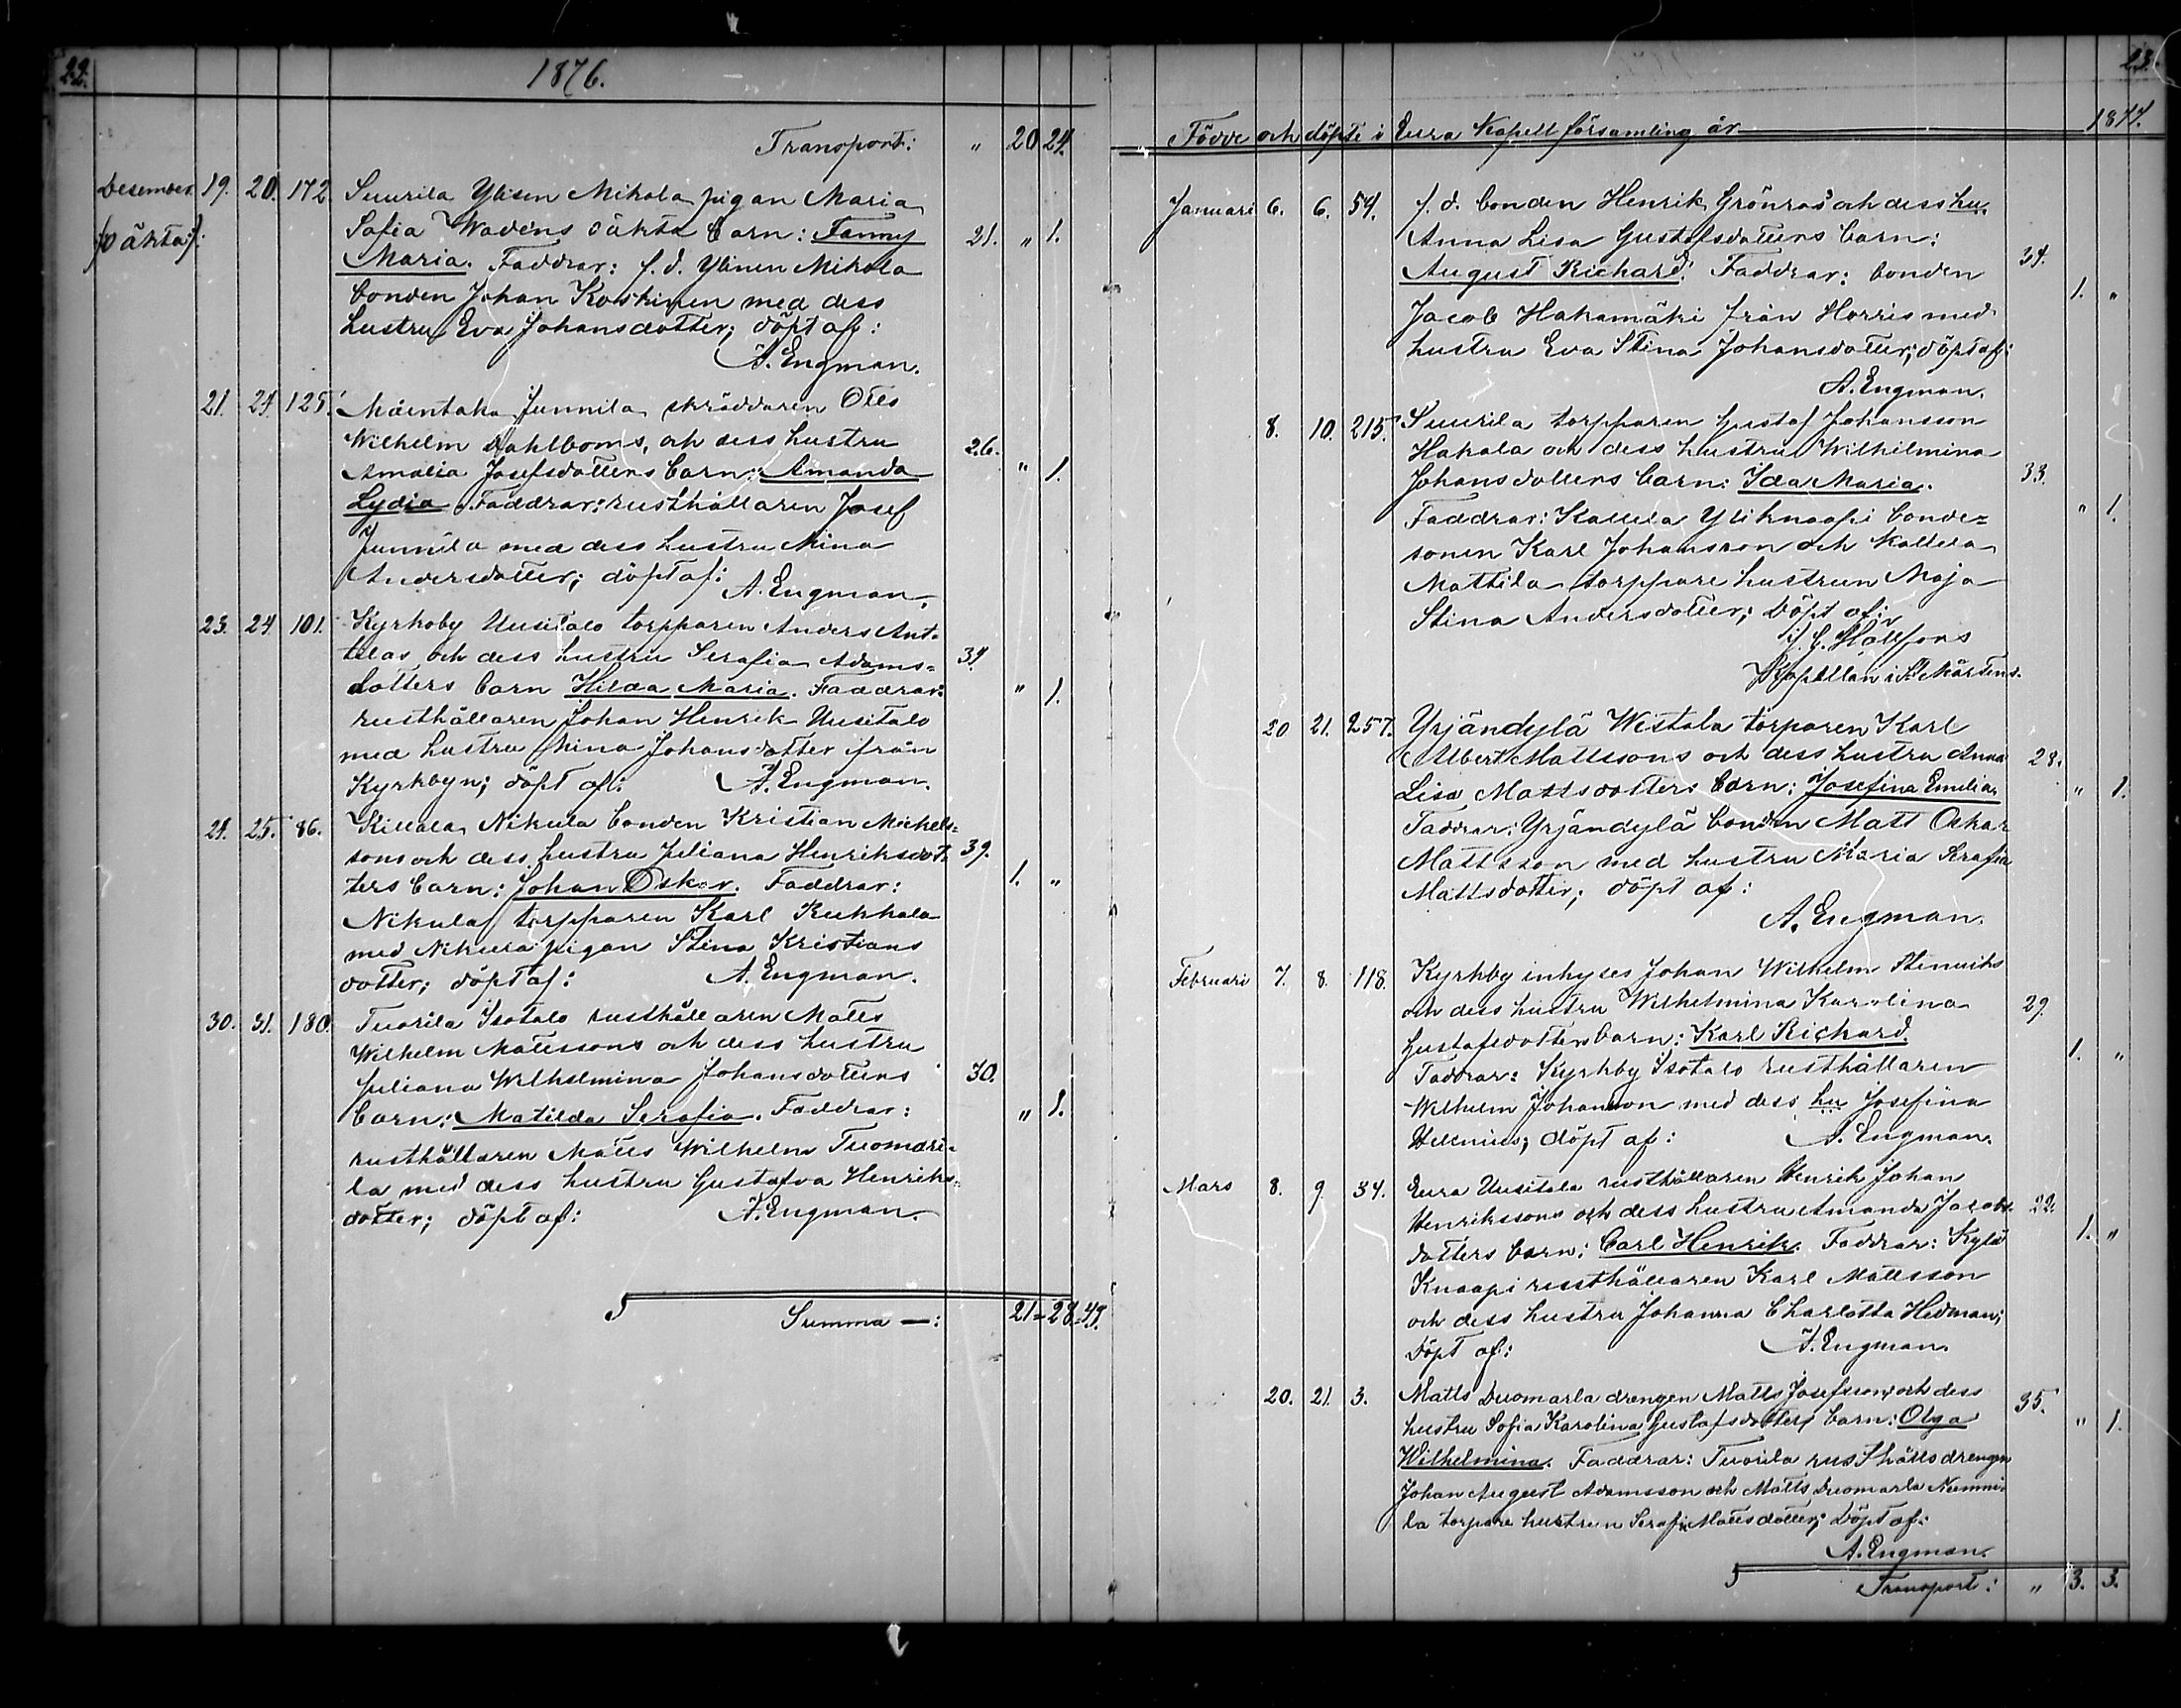 22.
1876.
Transport: " 20 24.
Desember 19. 20. 172. Suurila Ylisen Mikola pigan Maria
/:o äkta:/ Sofia Wadéns oäkta barn: Fanny 21. " 1.
Maria. Faddrar: f. d. Ylinen Mikola
bonden Johan Koskinen med dess
hustru Eva Johansdotter; döpt af:
A. Engman.
21. 24. 125. Mäentaka Junnila skräddaren Otto
Wilhelm Dahlboms, och dess hustru 26.
Amalia Josefsdotters barn: Amanda " 1.
Lydia Faddrar: rusthållaren Josef
Junnila med dess hustru Mina
Andersdotter; döpt af:
A. Engman.
23. 24 101. Kyrkoby Uusitalo torpparen Anders Ant-
tilas och dess hustru Serafia Adams= 34.
dotters barn Hilda Maria. Faddrar: " 1.
rusthållaren Johan Henrik Uusitalo
med hustru Mina Johansdotter från
Kyrkbyn; döpt af: A. Engman.
24. 25. 86. Killala Nikula bonden Kristian Michels=
sons och dess hustru Juliana Henriksdot- 39.
ters barn: Johan Oskar. Faddrar: 1. "
Nikula torpparen Karl Kukkala
med Nikula pigan Stina Kristians
dotter; döpt af: A. Engman.
30. 31. 180. Tuorila Isotalo rusthållaren Matts
Wilhelm Mattssons och dess hustru
Juliana Wilhelmina Johansdotters 30.
barn: Matilda Serafia. Faddrar: " 1.
rusthållaren Matts Wilhelm Tuomari-
la med dess hustru Gustafva Henriks=
dotter; döpt af: A. Engman.
Summa —: 21 = 28 = 49.
23.
Födde och döpte i Eura Kapellförsamling år 1877.
Januari 6. 6. 54. f. d. bonden Henrik Grönros och dess hu.
Anna Lisa Gustafsdotters barn: 34.
August Richard. Faddrar: bonden
Jacob Hakamäki från Horris med 1. "
hustru Eva Stina Johansdotter; döpt af:
A. Engman.
8. 10. 215. Suurila torpparen Gustaf Johansson
Hakala och dess hustru Wilhelmina
Johansdotters barn: Ida Maria. 33.
Faddrar: Kallela Yliknaapi bonde= " 1.
sonen Karl Johansson och Kallela
Mattila torppare hustrun Maja
Stina Andersdotter; Döpt af:
Hällfors
Kapellan i S:t Mårtens.
20 21. 257. Yrjändylä Westola torparen Karl
Albert Mattssons och dess hustru Anna 28.
Lisa Mattsdotters barn: Josefina Emilia. " 1.
Faddrar: Yrjändylä bonden Matt Oskar
Mattsson med hustru Maria Serafia
Mattsdotter; döpt af:
A. Engman.
Februari 7. 8. 118. Kyrkby inhyses Johan Wilhelm
och dess hustru Wilhelmina Karolina 29.
Gustafsdotters barn: Karl Richard.
Faddrar: Kyrkby Isotalo rusthållaren 1. "
Wilhelm Johansson med dess hu Josefina
Helenius; döpt af: A. Engman.
Mars 8. 9. 34. Eura Uusitalo rusthållaren Henrik Johan
Henrikssons och dess hustru Amanda Jacobs- 22.
dotters barn: Carl Henrik. Faddrar: Kylä 1. "
Knaapi rusthållaren Karl Mattsson
och dess hustru Johanna Charlotta Hedman;
döpt af: A. Engman.
20. 21. 3. Matts Duomarla drengen Matts Josefsson och dess
hustru Sofia Karolina Gustafsdotters barn: Olga 35. " 1.
Wilhelmina. Faddrar: Tuorila rusthålls drengen
Johan August Adamsson och Matts Duomarla Nummi-
la torpare hustrun Serafia Mattsdotter; Döpt af:
A. Engman.
Transport: " 3. 3.